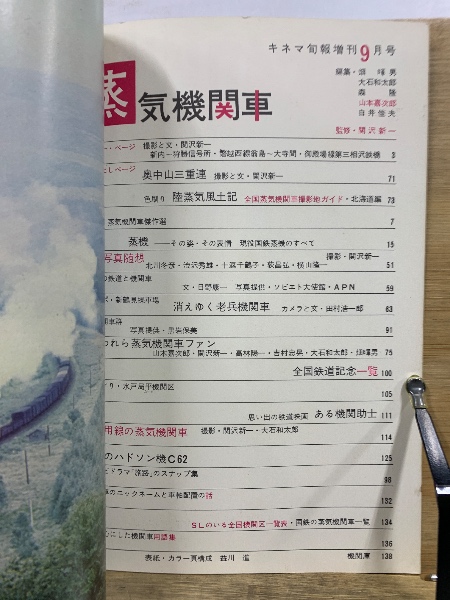 キネマ旬報増刊9月号
編集・畑暉男
大石和太郎
森隆
山本喜次郎
白井佳夫
蒸気機関車
監修・関沢新一
ー・ページ 撮影と文・関沢新一
新内〜狩勝信号所・磐越西線翁島〜大寺間・御殿場線第三相沢鉄橋 3
しページ 奥中山三重連 撮影と文・関沢新一 71
色刷り 陸蒸気風土記 全国蒸気機関車撮影地ガイド・北海道編 73
蒸気機関車傑作選 7
蒸機──その姿・その表情 現役国鉄蒸機のすべて 15
写真随想 撮影・関沢新一
北川冬彦・渋沢秀雄・十返千鶴子・荻昌弘・横山隆一 51
の鉄道と機関車
文・日野康一 写真提供・ソビエト大使館・APN 59
・新鶴見操車場 消えゆく老兵機関車 カメラと文・田村浩一郎 63
写真提供・黒岩保美 91
われら蒸気機関車ファン
山本喜次郎・関沢新一・高林陽一・吉村忠晃・大石和太郎・畑暉男 75
全国鉄道記念一覧 100
り・水戸局平機関区 105
思い出の鉄道映画 ある機関助士 111
用線の蒸気機関車 撮影・関沢新一・大石和太郎 114
のハドソン機C62 125
ビドラマ「旅路」のスナップ集 98
のニックネームと車軸配置の話 132
SLのいる全国機関区一覧表・国鉄の蒸気機関車一覧 134
心にした機関車用語集 136
表紙・カラー頁構成 益川進 機関庫 138